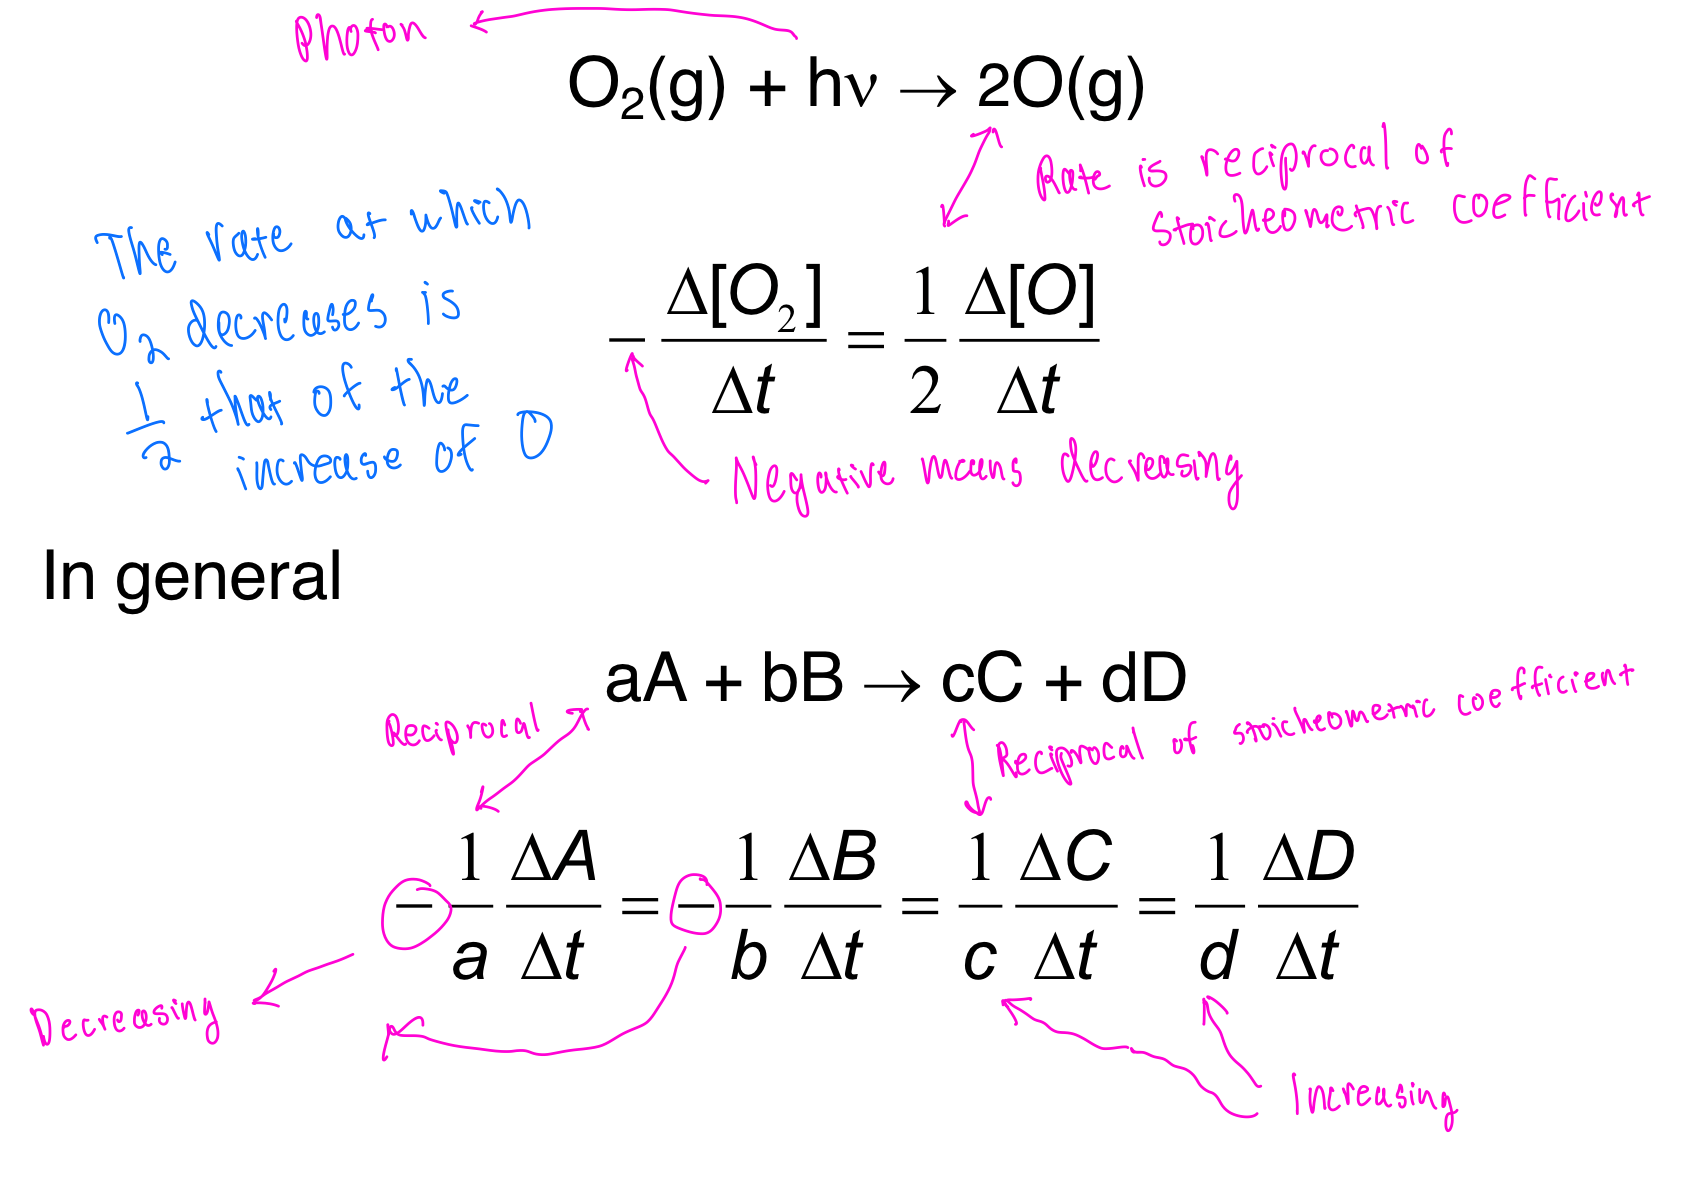 Photon
O₂(g) + hν → 2O(g)
Rate is reciprocal of
stoicheometric coefficient
The rate at which
O₂ decreases is
1/2 that of the
increase of O
-Δ[O₂]/Δt = 1/2 Δ[O]/Δt
Negative means decreasing
In general
aA + bB → cC + dD
Reciprocal
Reciprocal of stoicheometric coefficient
-1/a ΔA/Δt = -1/b ΔB/Δt = 1/c ΔC/Δt = 1/d ΔD/Δt
Decreasing
Increasing